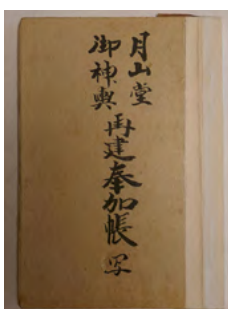 月山堂
御神輿
再建奉加帳 写